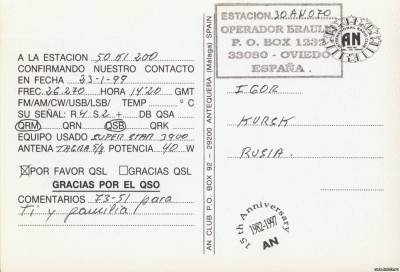 A LA ESTACION 50 KI 200
CONFIRMANDO NUESTRO CONTACTO
EN FECHA 23-1-99
FREC. 26.270 HORA 14'20 GMT
FM/AM/CW/USB/LSB/ TEMP ° C
SU SEÑAL: R 4 S 2 + DB QSA
QRM QRN QSB QRK
EQUIPO USADO SUPER STAR 3900
ANTENA POTENCIA 40 W
POR FAVOR QSL GRACIAS QSL
GRACIAS POR EL QSO
COMENTARIOS 73-51 para
Ti y familia
AN CLUB P.O. BOX 92 – 29200 ANTEQUERA (Málaga) SPAIN
ESTACION: 30 AN 070
OPERADOR BRAULIO
P. O. BOX 1232
33080 - OVIEDO
ESPAÑA.
AN
IGOR
KURSK
RUSIA.
15th Anniversary
1982-1997
AN